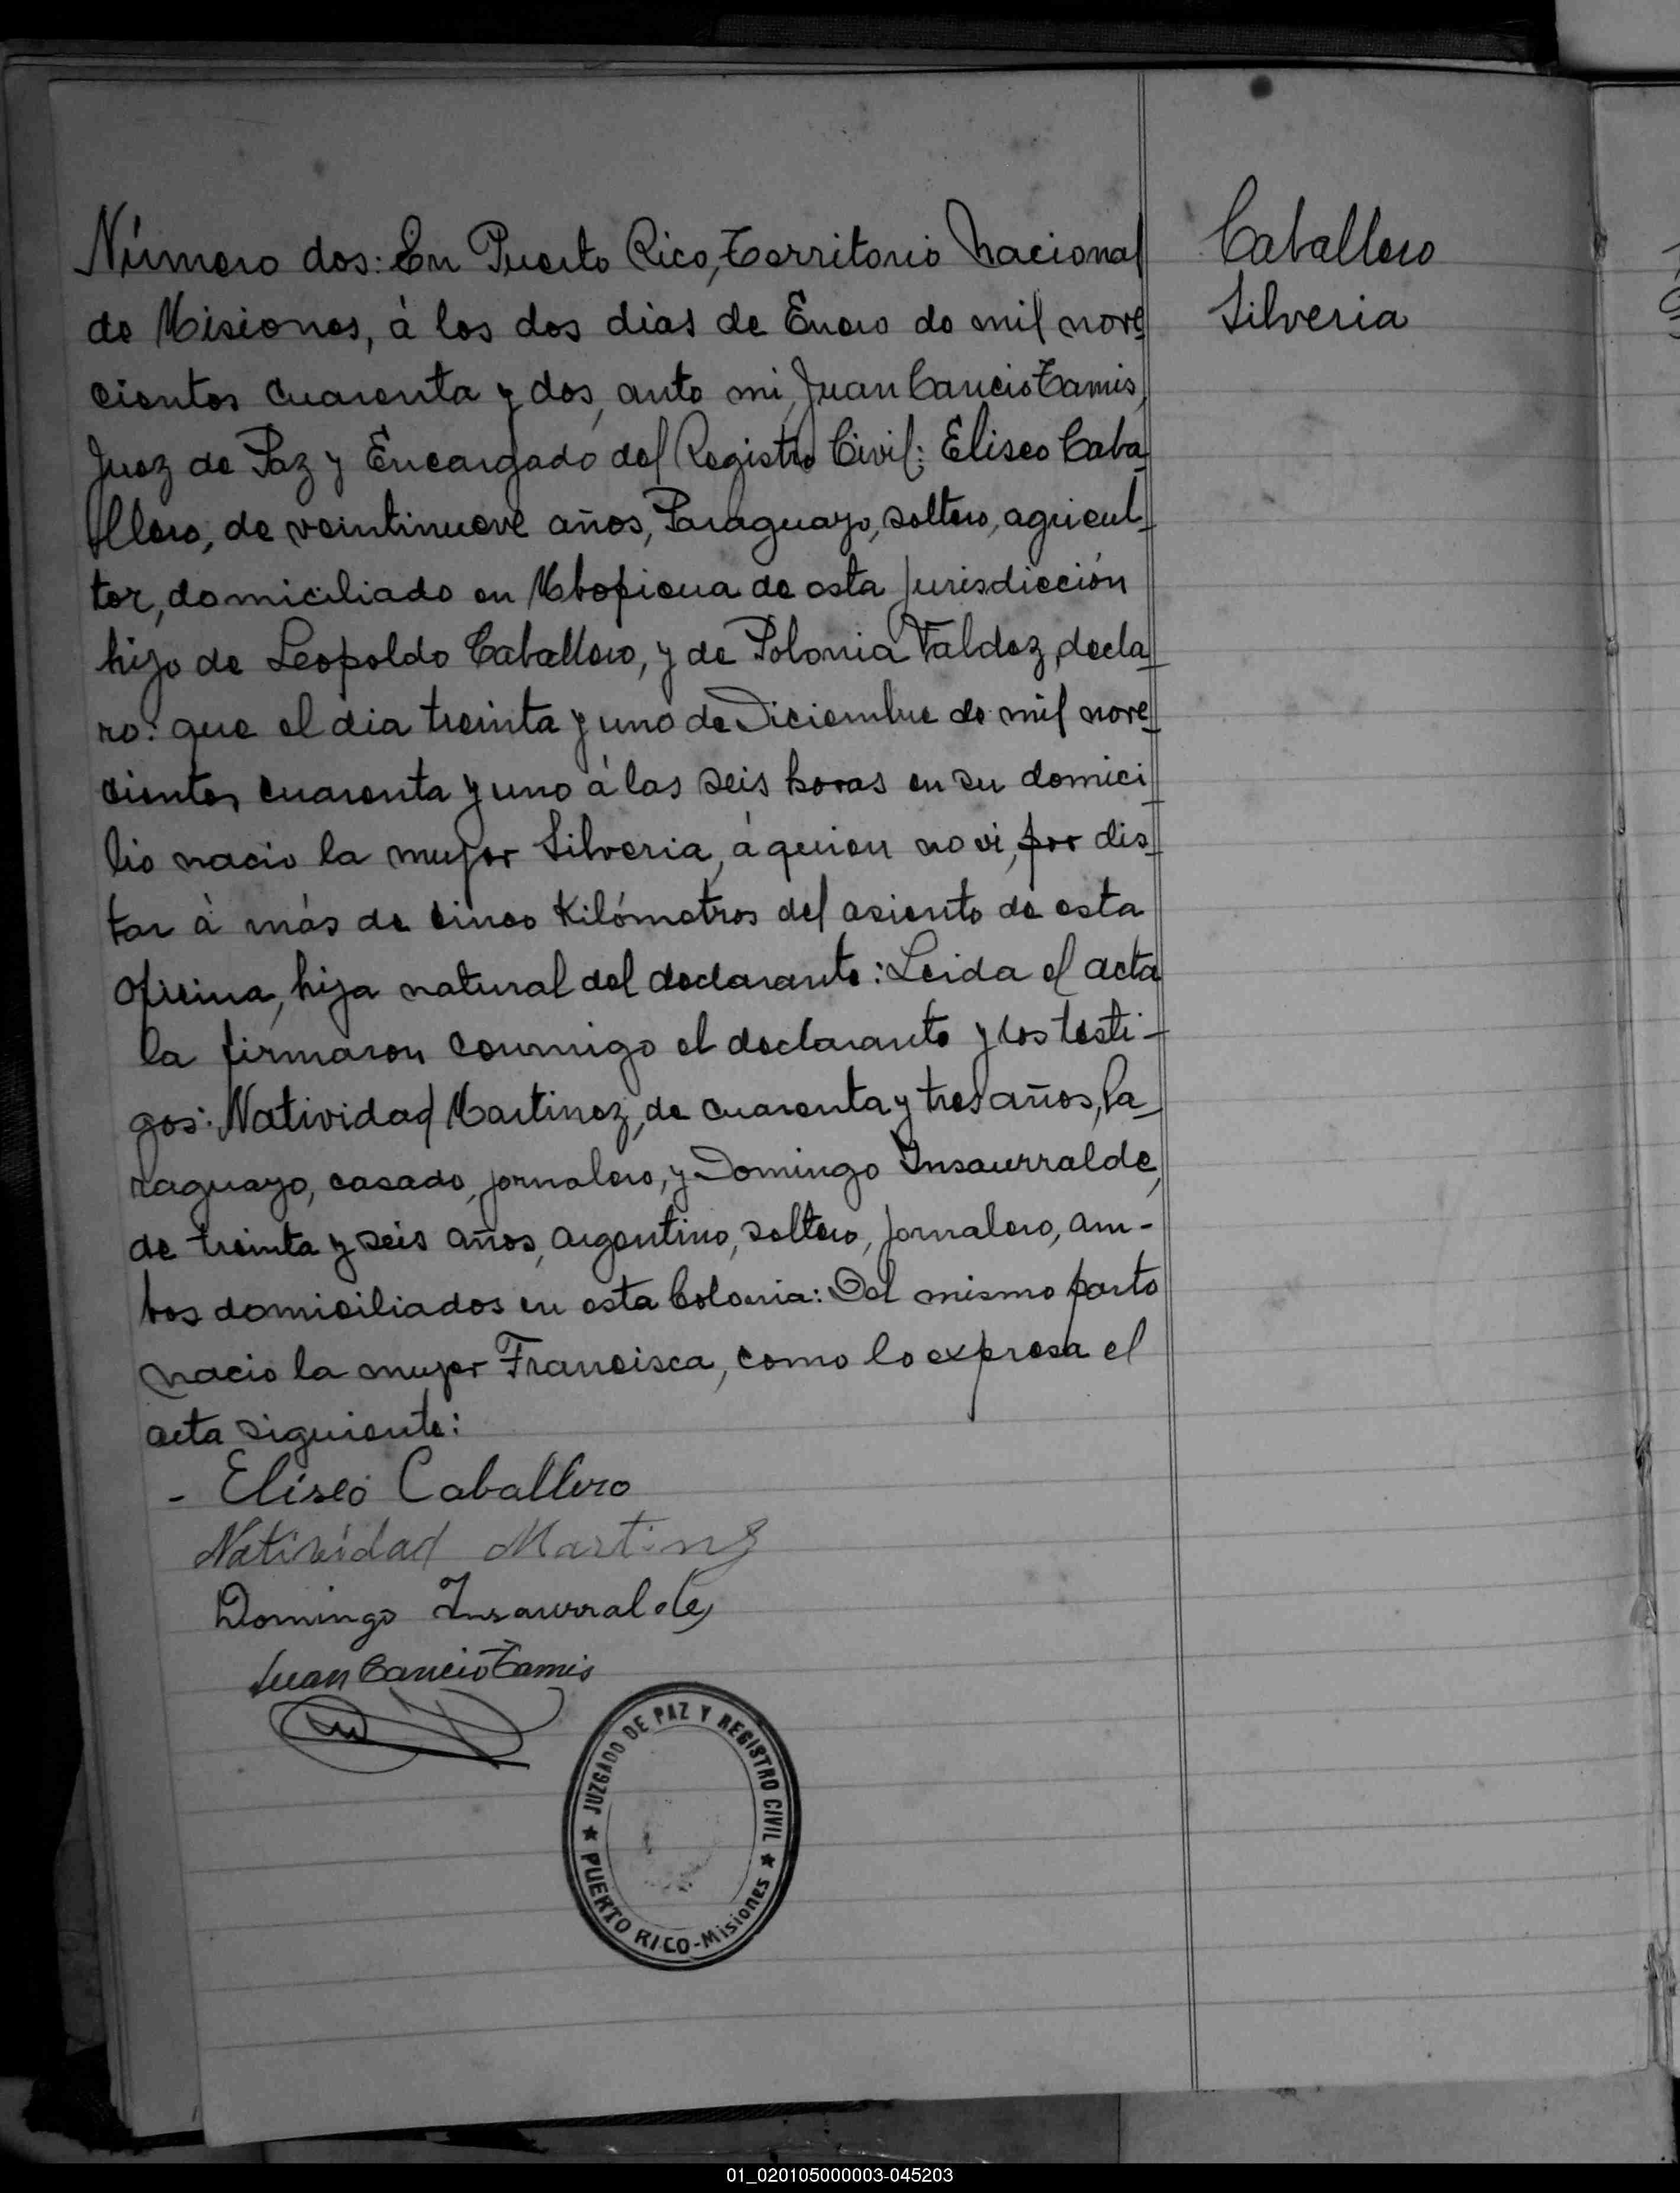 Número dos: En Puerto Rico, Territorio Nacional
de Misiones, á los dos dias de Enero de mil nove
cientos cuarenta y dos, ante mi, Juan Cancio Tamis,
Juez de Paz y Encargado del Registro Civil: Eliseo Caba
llero, de veintinueve años, Paraguayo, soltero, agricul-
tor, domiciliado en Mbopicua de esta jurisdicción
hijo de Leopoldo Caballero, y de Polonia Valdez, decla
ro: que el dia treinta y uno de Diciembre de mil nove
cientos cuarenta y uno á las seis horas en su domici
lio nacio la mujer Silveria, á quien no vi, por dis
tar á más de cinco Kilómetros del asiento de esta
Oficina, hija natural del declarante: Leida el acta
la firmaron conmigo el declarante y los testi-
gos: Natividad Martinez, de cuarenta y tres años, Pa
raguayo, casado, jornalero, y Domingo Insaurralde,
de treinta y seis años, argentino, soltero, jornalero, am-
bos domiciliados en esta Colonia: Del mismo parto
nacio la mujer Francisca, como lo expresa el
acta siguiente:
- Eliseo Caballero
Natividad Martinz
Domingo Insaurralde
Juan Cancio Tamis
Caballero
Silveria
JUZGADO DE PAZ Y REGISTRO CIVIL
★ PUERTO RICO-Misiones ★
01_020105000003-045203